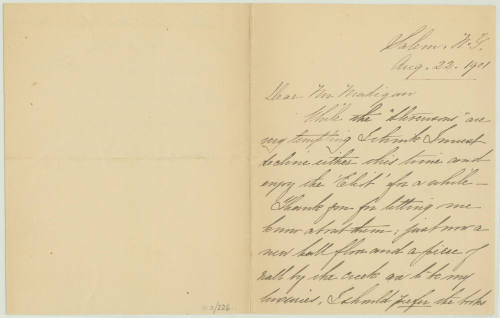 Salem. N.Y.
Aug. 22. 1901
Dear Mr Madigan
While the "Stevensons" are
very tempting I think I must
decline either this time and
enjoy the "Eliot" for a while –
Thank you for letting me
know about them; just now a
new hall floor and a piece of
wall by the creek are to be my
luxuries. I should prefer the books